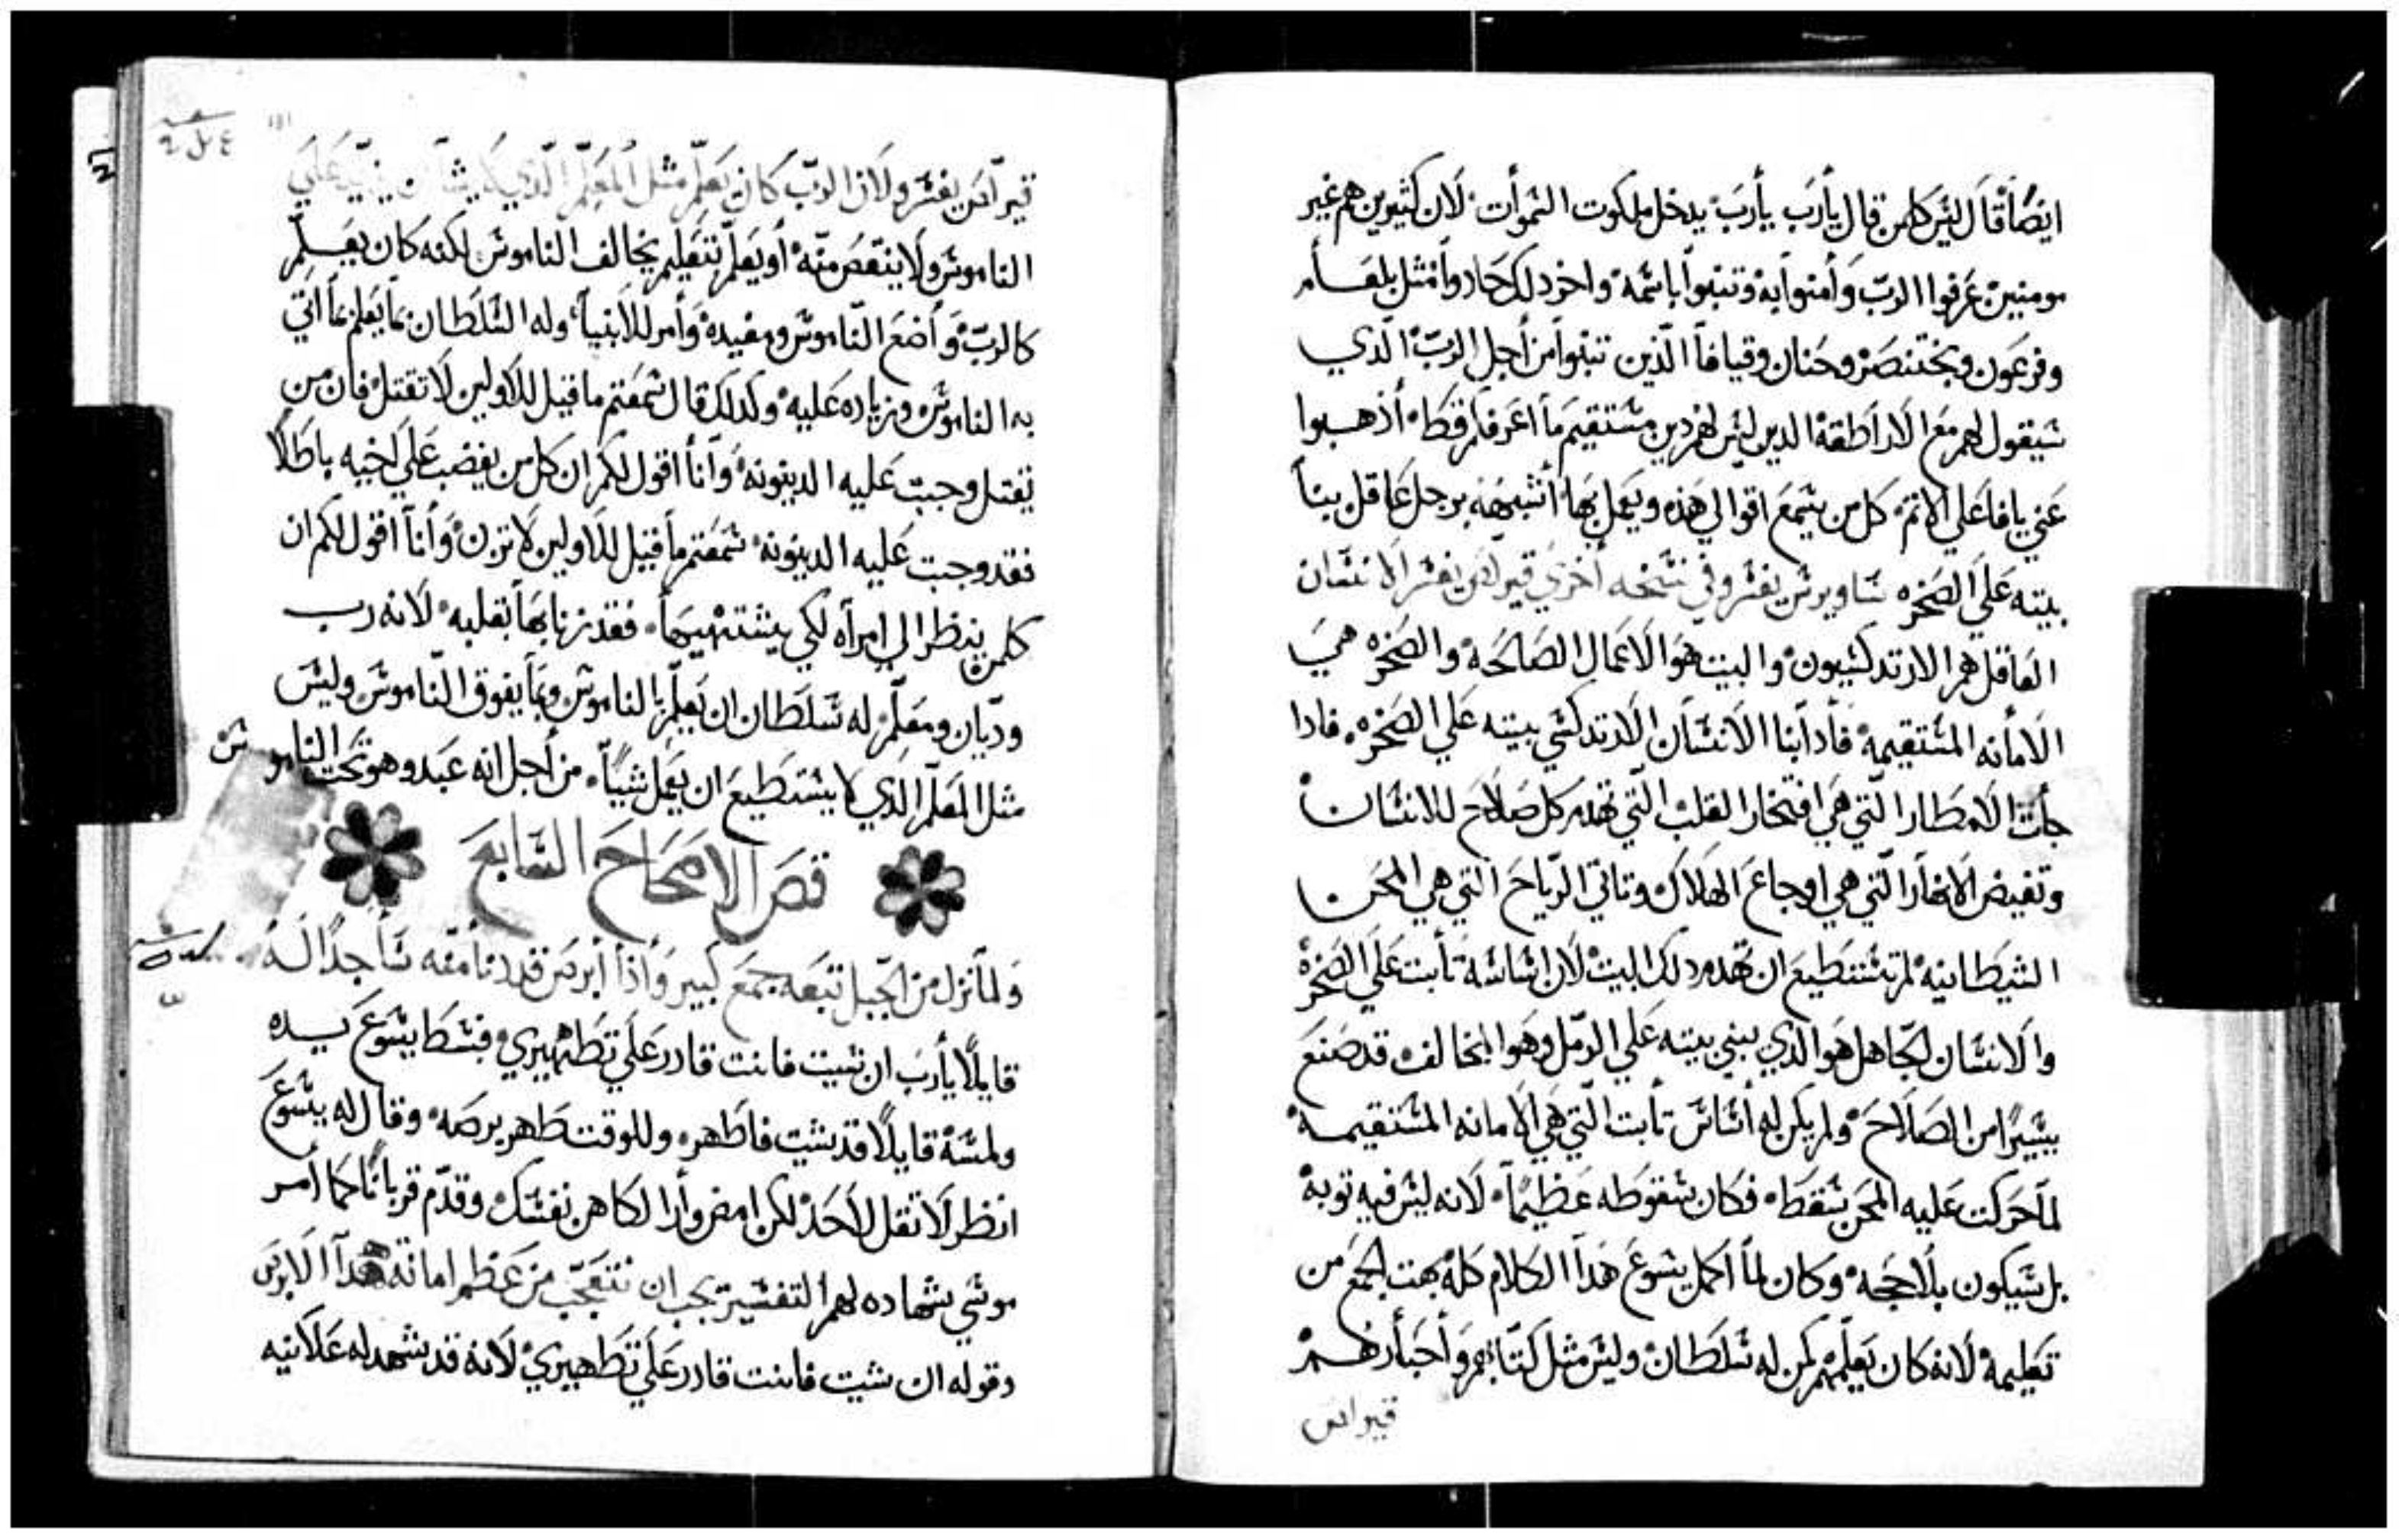 ايضًا قال ليس كلمن قال يارب يارب يدخل ملكوت السموات لان كثيرين هم غير
مومنين عرفوا الرب وامنوا به وتنبوا باسمه واخرد لك حادوا مثل بلعام
وفرعون وبختنصر وحنان وقيافا الذين تنبوا من أجل الرب الدي
سيقول لهم مع الاراطقة الدين ليس لهم دين مستقيم ما اعرفكم قط أذهبوا
عني يا فاعلي الاتم كل من يسمع اقوالي هذه ويعمل بها أشبهه برجل عاقل بنا
بيته على الصخره ساويرس يفسر وفي نسخه أخري قيرلس يفسر الانسان
العاقل هم الارتدكسيون والبيت هو الاعمال الصالحه والصخره هي
الامانه المستقيمة فادا بنا الانسان الارتدكسي بيته علي الصخره فادا
جات الامطار التي هي افتخار القلب التي تهدم كل صلاح للانسان
وتفيض الانهار التي هي اوجاع الهلاك وتاتي الرياح التي هي المحن
الشيطانيه لم تستطيع ان تهدم دلك البيت لان اساسه تابت علي الصخرة
والانسان الجاهل هو الدي يبني بيته علي الرمل وهو المخالف قد صنع
يسيرًا من الصلاح ولم يكن له أساس تابت التي هي الامانه المستقيمه
لما حركت عليه المحن سقط فكان سقوطه عظيمًا لانه ليس فيه توبة
بل سيكون بلا حجه وكان لما اكمل يسوع هدا الكلام كله بهت الجمع من
تعليمة لانه كان يعلمهم كمن له سلطان وليس مثل كتابهم وأحبارهم
قيراس
قيرلس يفسر ولان الرب كان يعلم مثل المعلم الدي علي
الناموس ولا ينقص منه أو يعلم تعليم يخالف الناموس لكنه كان يعلم
كالرب وأضع الناموس ومفيده وأمر للانبيا وله السلطان بما يعلم عما اتي
به الناموس وزياده عليه وكدلك قال سمعتم ما قيل للاولين لا تقتل فان من
يقتل وجبت عليه الدينونه وانا اقول لكم ان كل من يغضب علي اخيه باطلًا
فقد وجبت عليه الدينونه سمعتم ما قيل للاولين لا تزن وأنا اقول لكم ان
كلمن ينظر الي امرآه لكي يشتهيها فقد زنا بها بقلبه لانه رب
وديان ومعلم له سلطان ان يعلم بالناموس وبما يفوق الناموس وليس
مثل المعلم الدي لا يستطيع ان يعمل شيًا من أجل انه عبد وهو تحت الناموس
قص الاصحاح السابع
ولما نزل من الجبل تبعه جمع كبير وأذا أبرص قد دنا منه ساجدًا له
قايلًا يارب ان شيت فانت قادر علي تطهيري فبسط يسوع يده
ولمسة قايلًا قد شيت فاطهر وللوقت طهر برصه وقال له يسوع
انظر لا تقل لاحد لكن امض وأرا الكاهن نفسك وقدم قربانًا كما أمر
موسي شهاده لهم التفسير يجب ان نتعجب من عظم امانة هدا الابرص
وقوله ان شيت فانت قادر علي تطهيري لانه قد شهد له علانيه